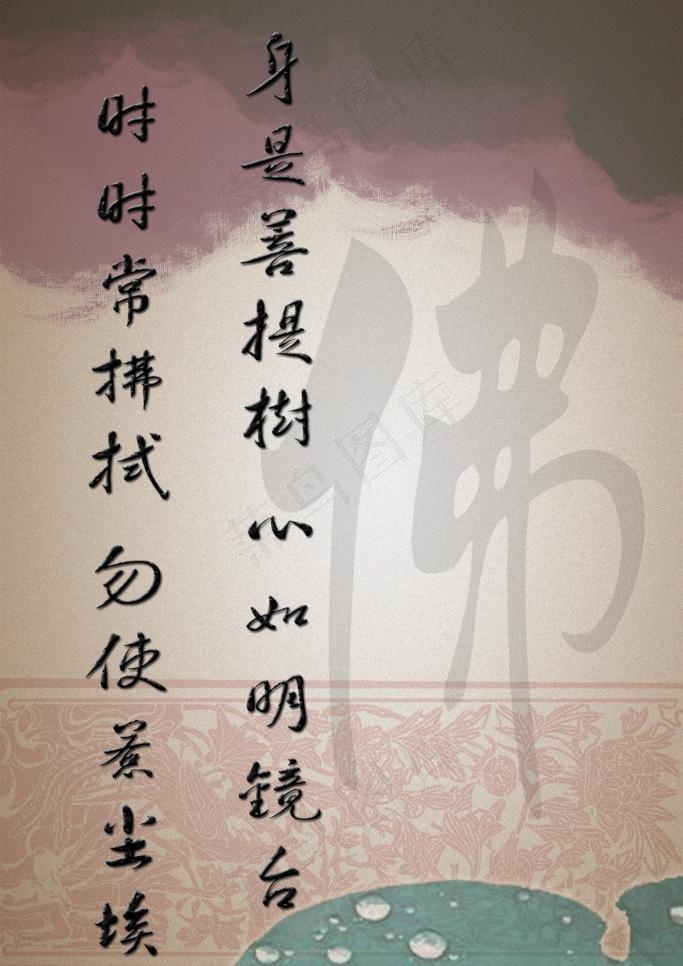 身是善提樹心如明鏡台
时时常拂拭勿使惹尘埃
佛
菜鸟图库